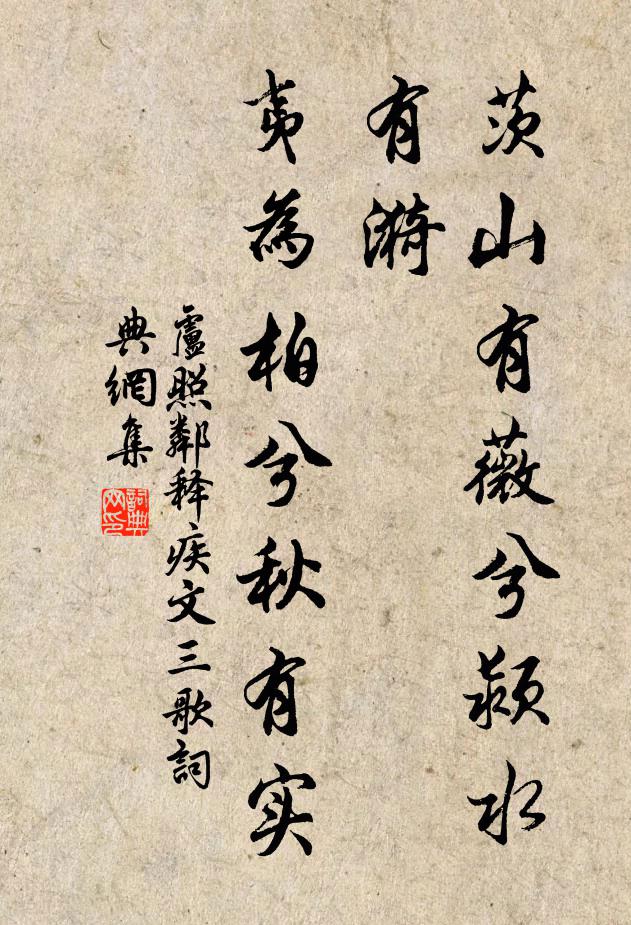 茨山有薇兮颍水
有漪
夷為柏兮秋有实
盧照鄰释疾文三歌詞
典網集
詞典网印